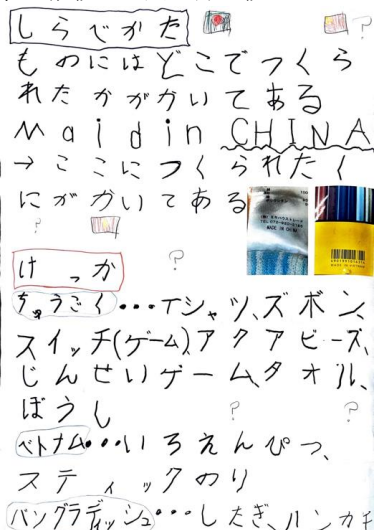 しらべかた
ものにはどこでつくら
れたかがかいてある
Maid in CHINA
→ここにつくられたく
にがかいてある
MADE IN CHINA
?
?
けっか
?
ちゅうごく・・・Tシャツ、ズボン、
スイッチ(ゲーム)、アクアビーズ、
じんせいゲーム、タオル、
ぼうし
?
?
ベトナム・・・いろえんぴつ、
スティックのり
バングラディッシュ・・・したぎ、ハンカチ